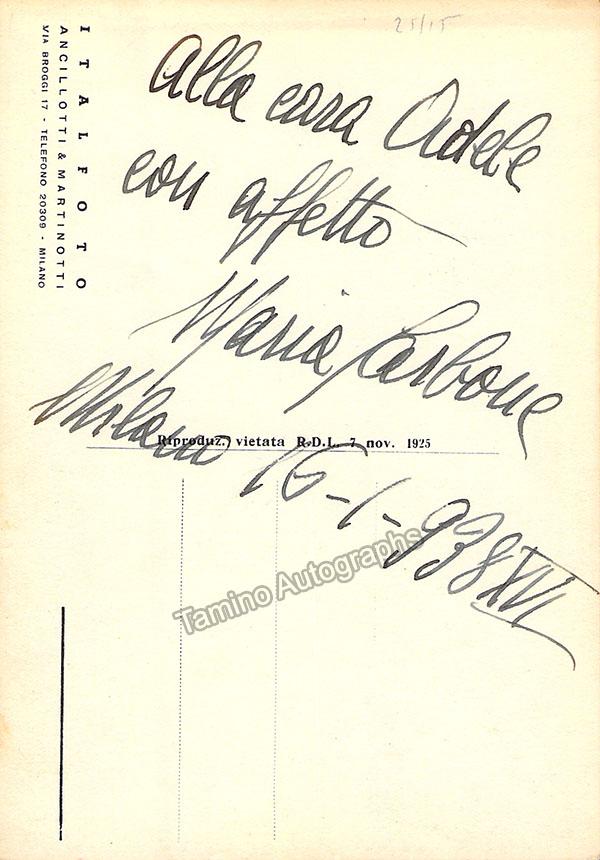 25/15
ITALFOTO
ANCILLOTTI & MARTINOTTI
VIA BROGGI 17 - TELEFONO 20309 - MILANO
Alla cara Adele
con affetto
Maria Carbone
Milano 16-1-938 XVI
Riproduz. vietata R.D.L. 7 nov. 1925
Tamino Autographs